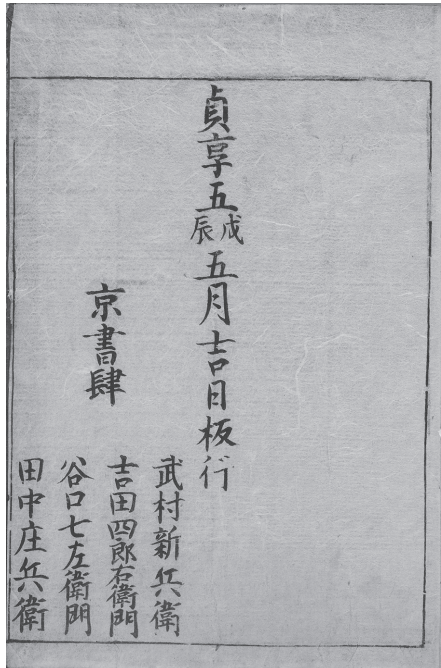 貞享五戊辰五月吉日板行
京書肆
武村新兵衛
吉田四郎右衛門
谷口七左衛門
田中庄兵衛